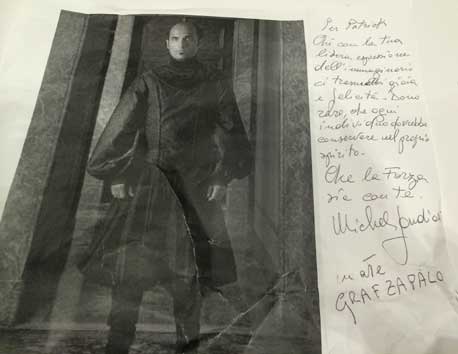 Per Patrick
Chi con la tua
libera espressione
dell'immaginario
ci trasmetti gioia
e felicità. Dono
raro, che ogni
individuo dovrebbe
conservare nel proprio
spirito.
Che la Forza
sia con te.
in arte
GRAF ZAPALO